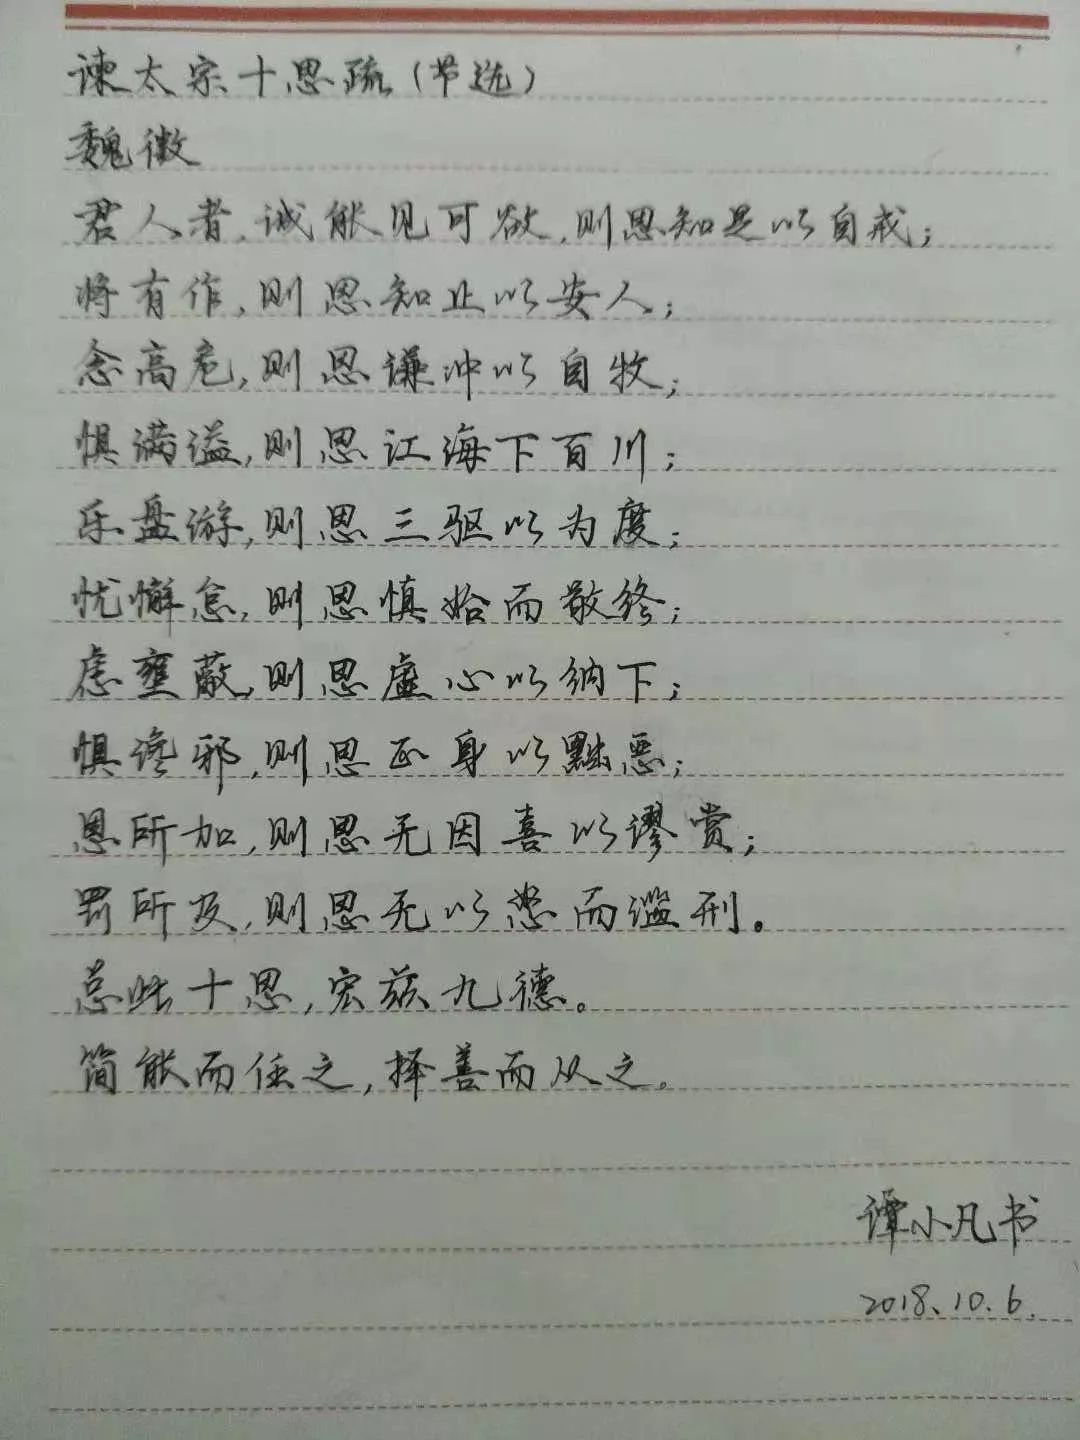 谏太宗十思疏(节选)
魏徵
君人者,诚能见可欲,则思知足以自戒;
将有作,则思知止以安人;
念高危,则思谦冲以自牧;
惧满溢,则思江海下百川;
乐盘游,则思三驱以为度;
忧懈怠,则思慎始而敬终;
虑壅蔽,则思虚心以纳下;
惧谗邪,则思正身以黜恶;
恩所加,则思无因喜以谬赏;
罚所及,则思无以怒而滥刑。
总此十思,宏兹九德。
简能而任之,择善而从之。
谭小凡书
2018.10.6.